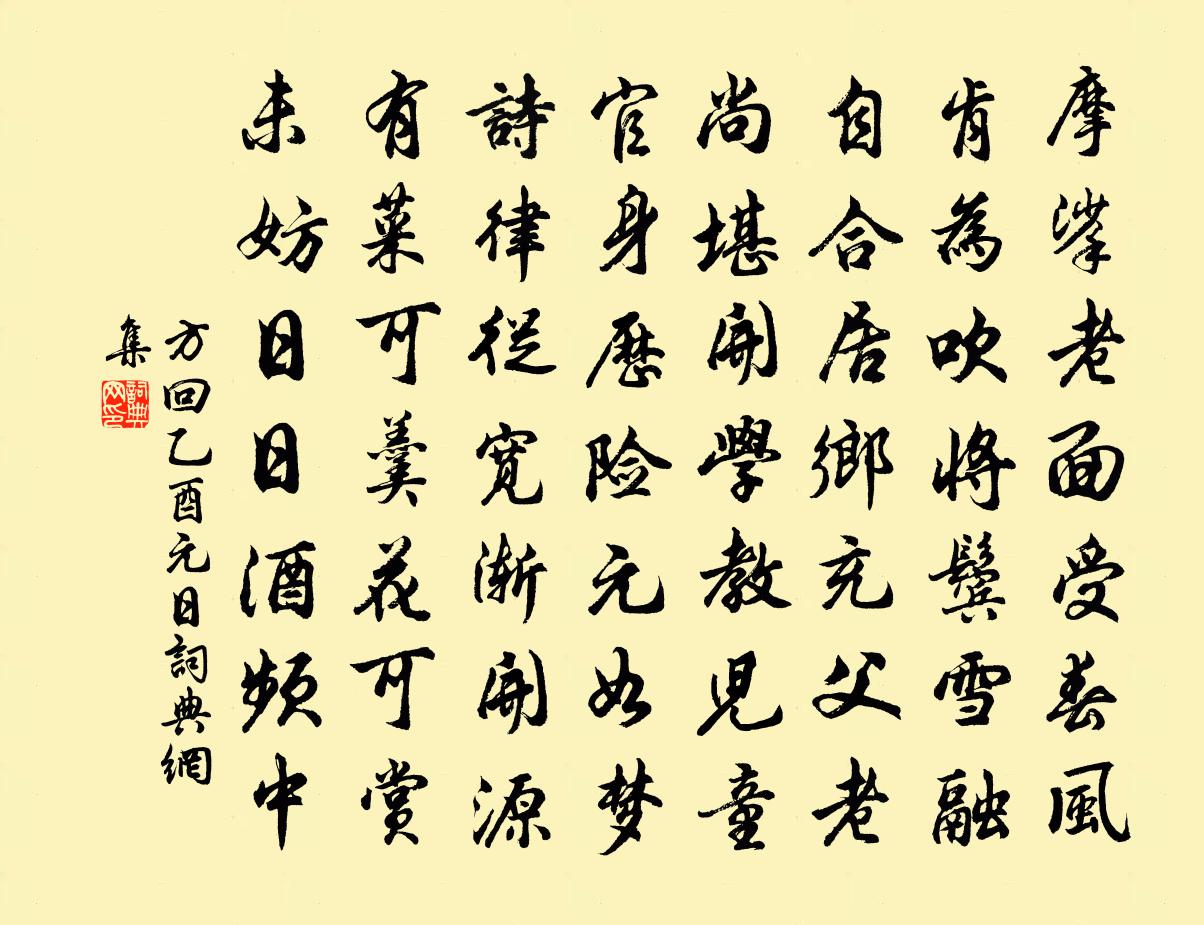 摩挲老面受春風
肯為吹將鬢雪融
自合居鄉充父老
尚堪開學教児童
官身歷险元如梦
詩律從宽漸開源
有菜可羹花可賞
未妨日日酒頻中
方回乙酉元日詞典網
集
詞典
网印